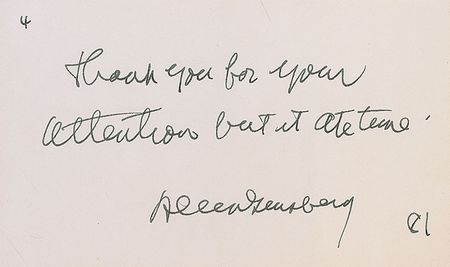 4
Thank you for your
attention but it ate time.
Allen Ginsberg
81